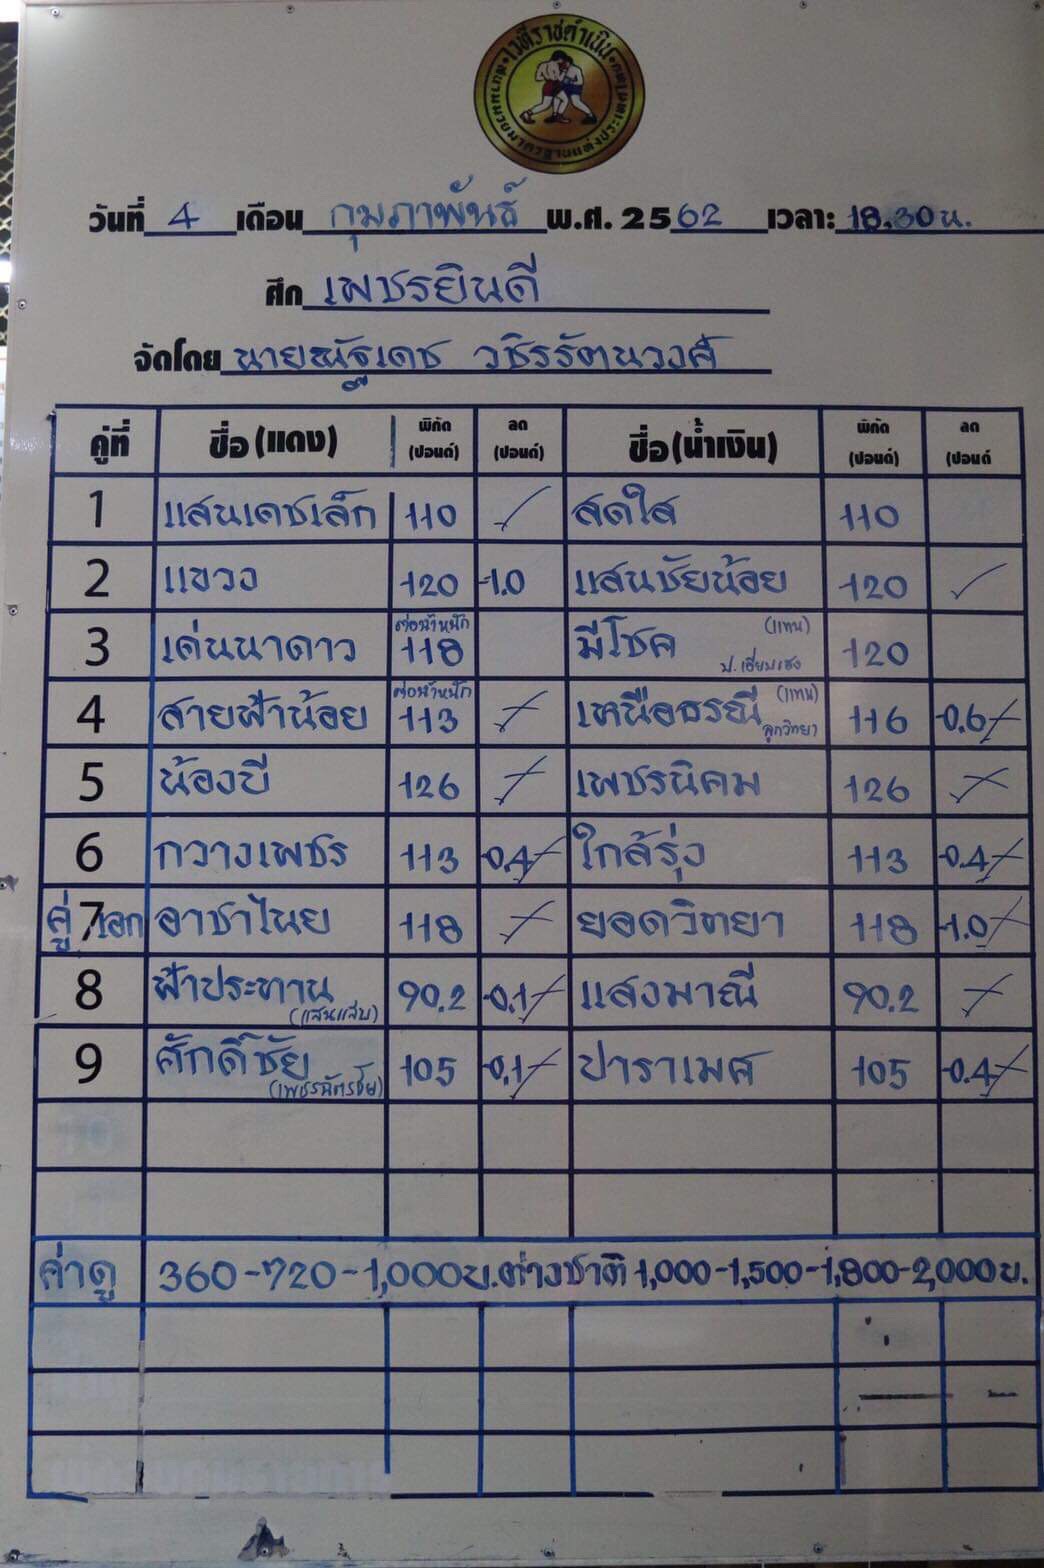 เวทีราชดำเนิน
วันที่ 4 เดือน กุมภาพันธ์ พ.ศ. 2562 เวลา: 18.30 น.
ศึก เพชรยินดี
จัดโดย นายณัฐเดช วชิรรัตนวงศ์
คู่ที่ ชื่อ (แดง) พิกัด (ปอนด์) ลด (ปอนด์) ชื่อ (น้ำเงิน) พิกัด (ปอนด์) ลด (ปอนด์
1 แสนเดชเล็ก 110 ✓ สดใส 110
2 แขวง 120 -1.0 แสนชัยน้อย 120 ✓
3 เด่นนาดาว ต่อน้ำหนัก 118 มีโชค (แทน) ป.เฮี่ยบเซง 120
4 สายฟ้าน้อย ต่อน้ำหนัก 113 เหนือธรณี (แทน) ลูกวิทยา 116 -0.6
5 น้องบี 126 เพชรนิคม 126
6 กวางเพชร 113 -0.4 ใกล้รุ่ง 113 -0.4
คู่ 7 เอก อาชาไนย 118 ยอดวิทยา 118 -1.0
8 ฟ้าประทาน (แสนแสบ) 90.2 -0.1 แสงมาณี 90.2
9 ศักดิ์ชัย (เพชรฉัตรชัย) 105 -0.1 ปาราเมศ 105 -0.4
ค่าดู 360-720-1,000 บ. ต่างชาติ 1,000-1,500-1,800-2,000 บ.